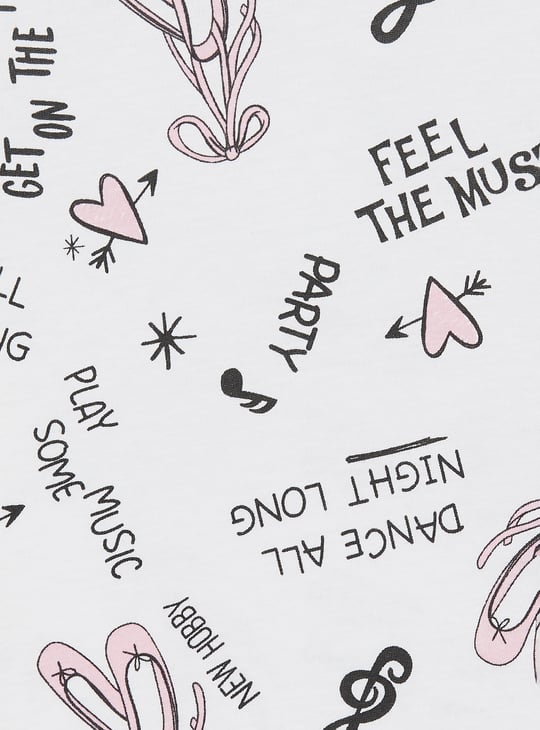 GET
ON THE
FEEL
THE MUS
PARTY
LL
NG
PLAY
SOME
MUSIC
DANCE ALL
NIGHT LONG
NEW HOBBY